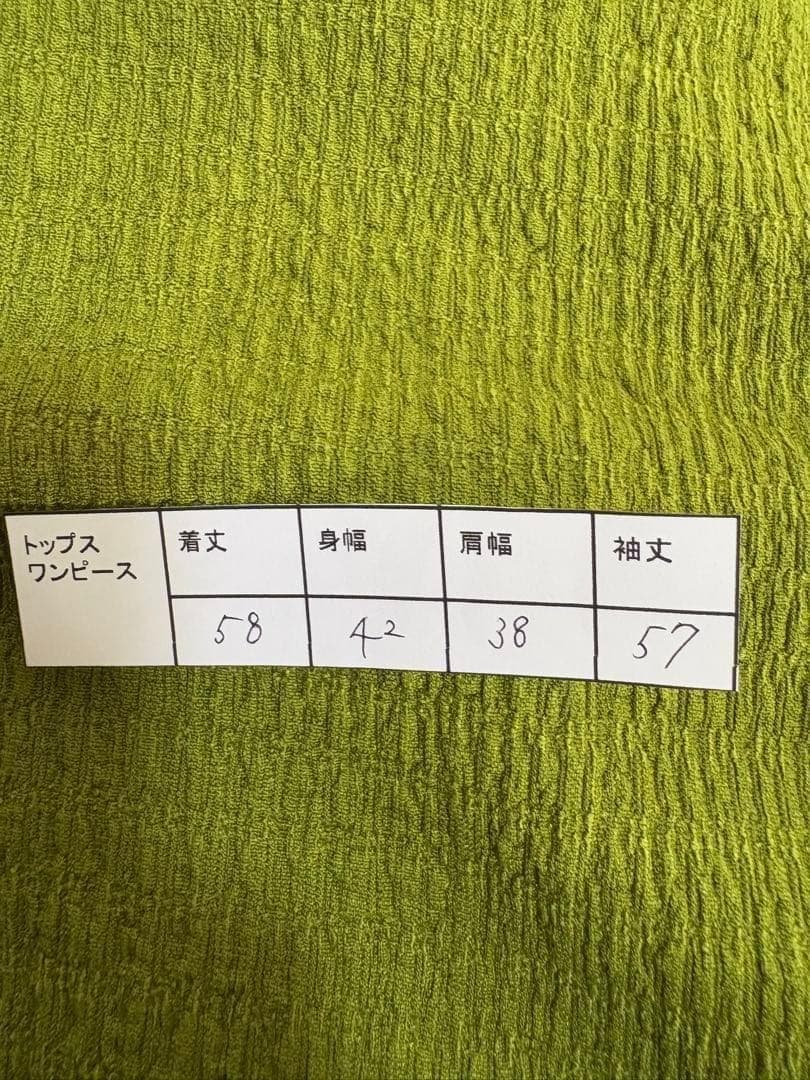 トップス
ワンピース
着丈 身幅 肩幅 袖丈
58 42 38 57